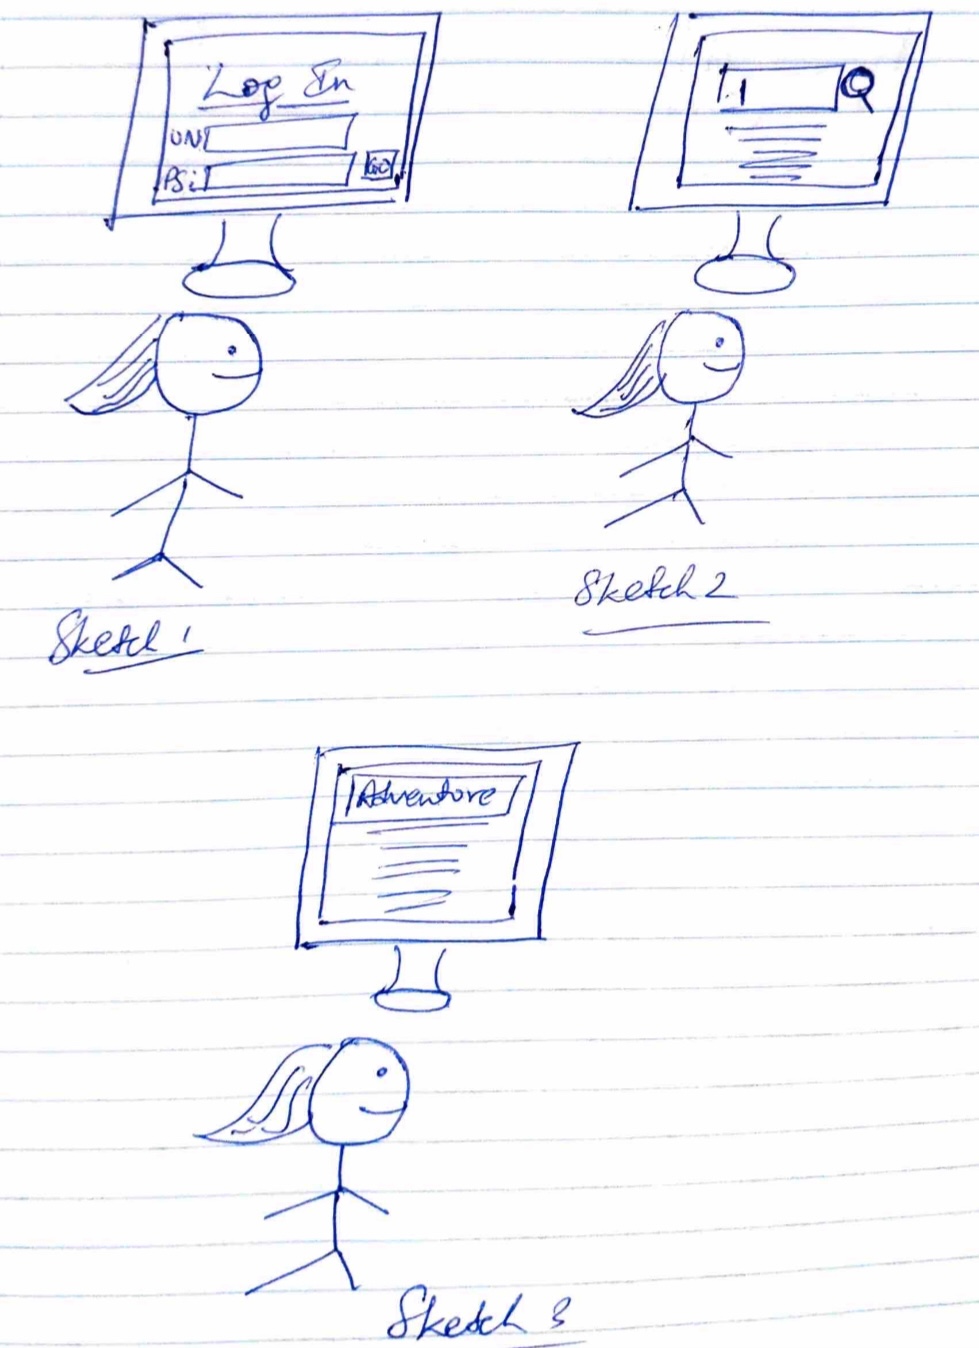 Log In
UN
PS:
GO
Sketch 1
Sketch 2
Adventure
Sketch 3